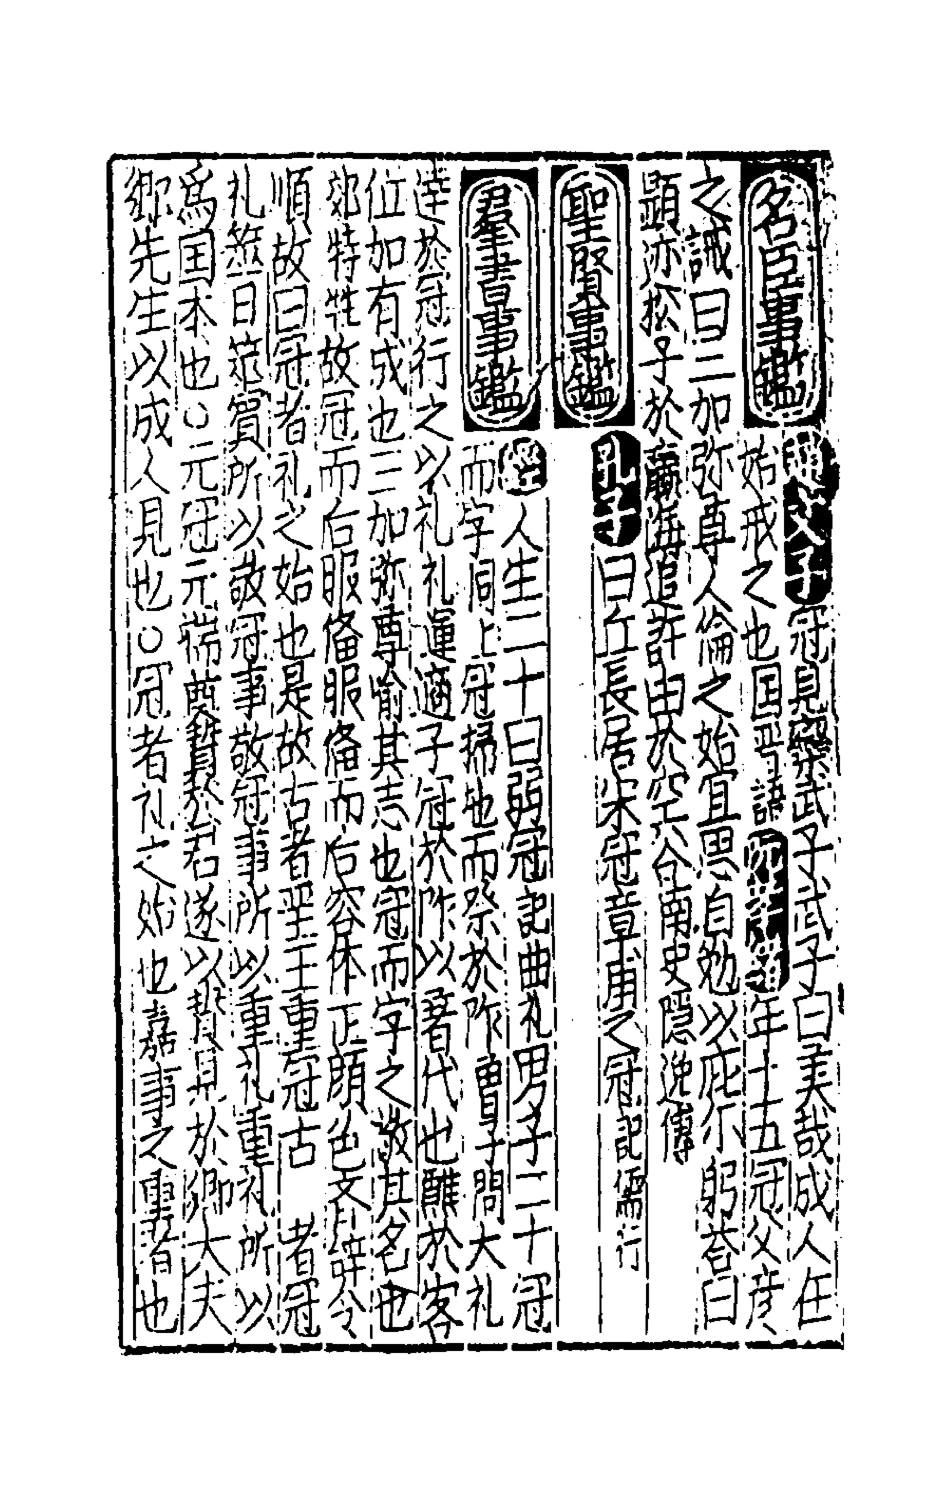 名臣事鑑
文子冠見欒武子武子曰美哉成人在
始戒之也国晋語阮孝緒年十五冠父彦
之誡曰三加弥尊人倫之始宜思自勉以庇尓躬荅曰
顕迹松子於瀛海追許由於空谷南史隐逸傳
聖賢事鑑
孔子曰丘長居宋冠章甫之冠記儒行
羣書事鑑
經人生二十曰弱冠記曲礼男子二十冠
而字同上冠掃地而祭於阼 曽子問大礼
達於冠行之以礼礼運適子冠於阼以著代也醮於客
位加有成也三加弥尊喻其志也冠而字之敬其名也
郊特牲故冠而后服俻服俻而后容体正顔色文辞令
順故曰冠者礼之始也是故古者圣王重冠古 者冠
礼筮日筮賔所以敬冠事敬冠事所以重礼重礼所以
為国本也○元冠元端奠贄於君遂以贄見於卿大夫
郷先生以成人見也○冠者礼之始也嘉事之重者也